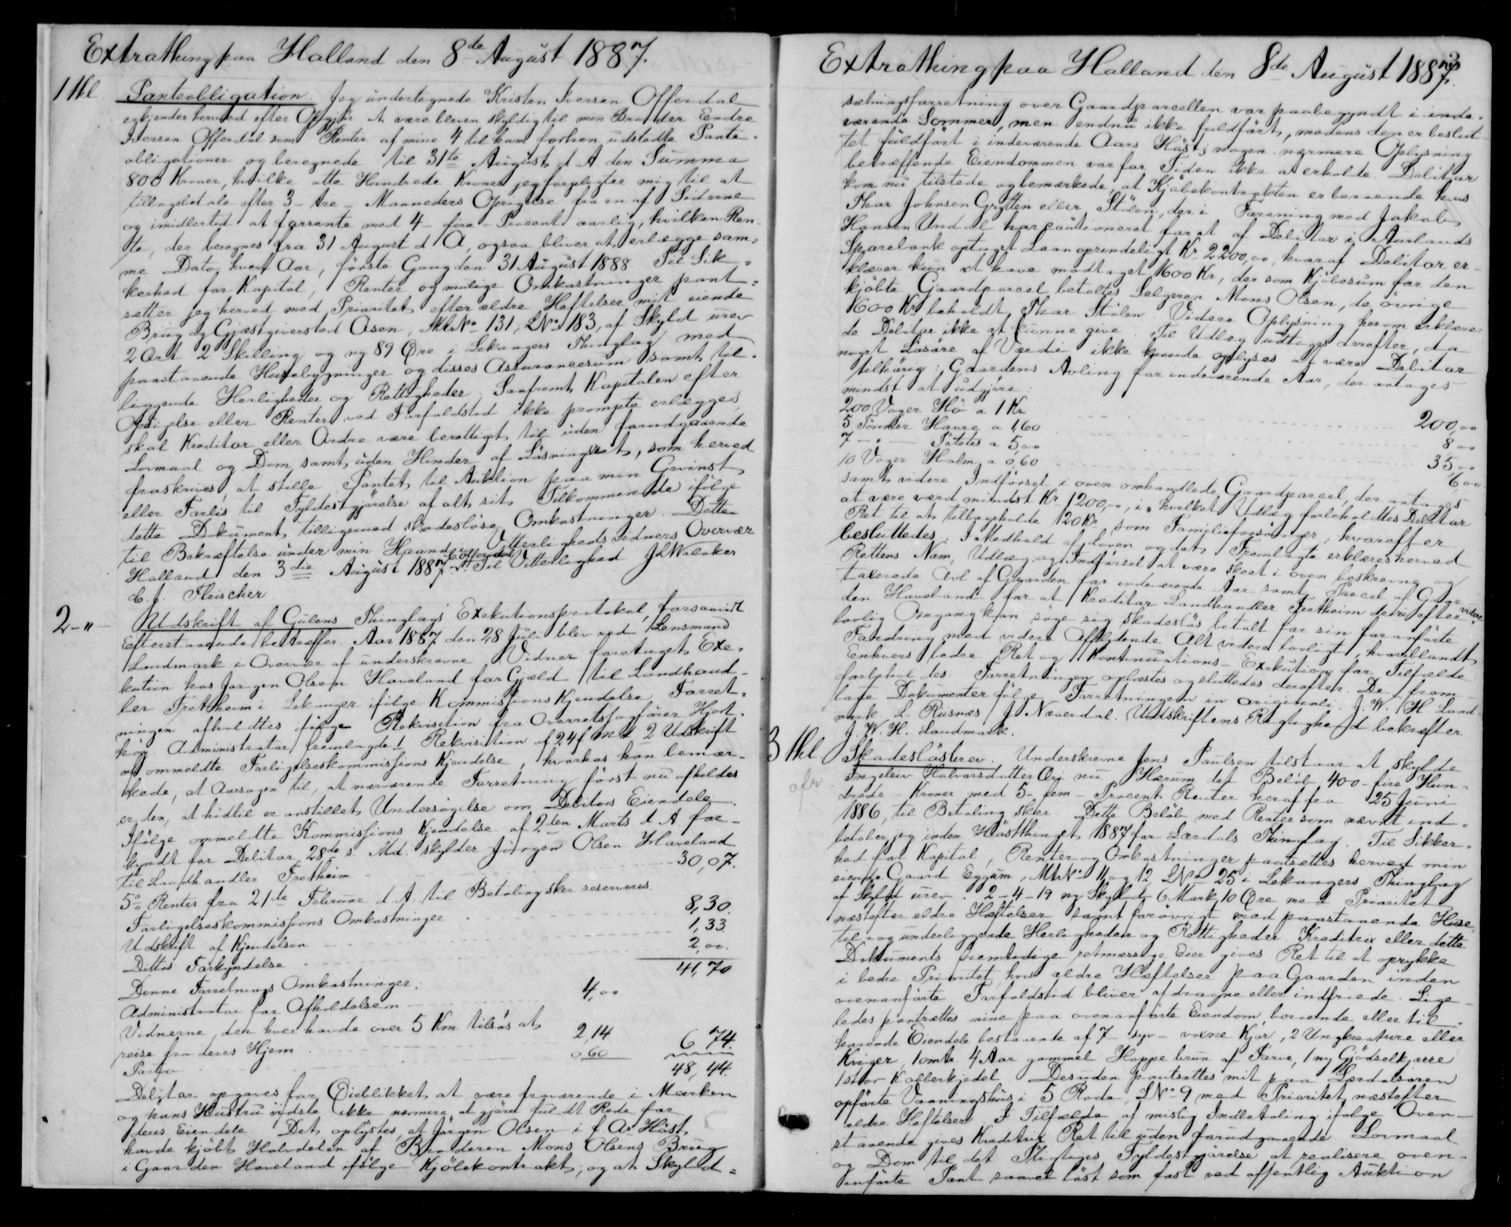 Extrathing paa Halland den 8de August 1887.
1 Hl Panteobligation. Jeg undertegnede Kristen Iversen Offerdal
erkjender herved efter Opgjør at være bleven skyldig til min Broder Endre
Iversen Offerdal som Renter af mine 4 til ham forhen udstedte Pante-
obligationer og beregnede til 31te August d A den Summa
800 Kroner, hvilke otte Hundrede Kroner jeg forpligter mig til at
tilbagebetale efter 3 - tre - Maaneders Opsigelse fra en af Siderne
og imidlertid at forrente med 4 - fire - Procent aarlig, hvilken Ren-
te, der beregnes fra 31 August d A, ogsaa bliver at erlægge sam-
me Dato hvert Aar, første Gang den 31 August 1888 Til Sik-
kerhed for Kapital, Renter og mulige Omkostninger pant-
sætter jeg herved med Prioritet efter ældre Hæftelser mit eiende
Brug og Gjæstgiversted Aasen, Mt No 131, LNo 183, af Skyld urev
2 Ort 2 Skilling og ny 89 Øre i Lekangers Thinglag med
paastaaende Husebygninger og disses Assurancesum samt til-
liggende Herligheder og Rettigheder, Saafremt Kapitalen efter
Opsigelse eller Renter ved Forfaldstid ikke prompte erlægges,
skal Kreditor eller Ordre være berettiget til uden forudgaaende
Lovmaal og Dom, samt uden Hinder af Løsningsret, som herved
fraskrives, at stille Pantet til Auktion paa min Gevinst
eller Forlis til Fyldestgjørelse af alt sit Tilkommende ifølge
dette Dokument, tilligemed skadesløse Omkostninger. Dette
til Bekræftelse under min Haand i Vitterlighedsvidners Overvær
Halland den 3die August 1887. K Offerdal Til Vitterlighed J L Walaker
C. J. Fleischer
2 - " - Udskrift af Gulens Thinglags Exekutionsprotokol, forsaavidt
Efterstaaende betræffer. Aar 1887 den 28 Juli blev ved Lensmand
Landmark i Overvær af underskrevne Vidner foretaget Exe-
kution hos Jørgen Olsen Haveland for Gjæld til Landhand-
ler Fretheim i Lekanger ifølge Kommissions Kjendelse, Forret-
ningen afholdtes ifølge Rekvisition fra Overretssagfører Hjort-
høg. Administrator fremlagde Rekvisition af 24 f Md 2 Udskrift
af ommeldte Forligelseskommissions Kjendelse, hvorhos han bemær-
kede, at Aarsagen til, at nærværende Forretning først nu afholdes
er den, at hidtil er anstillet Undersøgelse om Debitors Eiendele.
Ifølge ommeldte Kommissions Kjendelse af 2den Marts d A for-
kyndt for Debitor 28de s Md. skylder Jørgen Olsen Haveland
til Landhandler Fretheim 30 07.
5% Renter fra 21te Februar d A til Betaling sker reserveres.
Forligelseskommissions Omkostninger 8,30.
Udskrift af Kjendelsen 1,33
Dittos Forkyndelse 2,00.
41,70
Denne Forretnings Omkostninger.
Administrator for Afholdelsen 4,00
Vidnerne, der hver havde over 5 Km tilsøs at
reise fra deres Hjem 2,14
0,60 6 74.
48,44.
Debitor opgaves for Øieblikket at være fraværende i Marken
og hans Hustru vidste ikke nærmere at gjøre fuldt Rede for
deres Eiendele. Det oplystes, at Jørgen Olsen i f A Høst
havde kjøbt Halvdelen af Broderen Mons Olsens Brug
i Gaarden Haveland ifølge Kjøbekontrakt, og at Skyld-
Extrathing paa Halland den 8de August 1887.
sætningsforretning over Gaardparcellen var paabegyndt i inde-
værende Sommer, men endnu ikke fuldført, medens den er beslut-
tet fuldført i indeværende Aars Høst; nogen nærmere Oplysning
betræffende Eiendommen var for Tiden ikke at erholde. Debitor
kom nu tilstede og bemærkede, at Kjøbekontrakten er beroende hos
Thor Johnsen Grytten eller Stølen, der i Forening med Jakob
Hansen Undal har cautioneret for et af Debitor i Aurlands
Sparebank optaget Laan oprindeligt Kr 2200,00, hvoraf Debitor er-
klærer kun at have modtaget 1600 Kr, der som Kjøbesum for den
kjøbte Gaardparcel betaltes Sælgeren Mons Olsen, de øvrige
600 Kr beholdt Thor Stølen. Videre Oplysning herom erklære-
de Debitor ikke at kunne give. Til Udlæg udtoges derefter, da
noget Løsøre af Værdi ikke kjende oplyses at være Debitor
tilhørig: Gaardens Avling for indeværende Aar, der antages
mindst at udgjøre
200 Vager Hø a 1 Kr 200,00
5 Tønder Havre a 1,60 8 00
7 - " - Poteter a 5,00 35,00
10 Vager Halm a 0,60 6,00
samt videre Indførsel i oven omhandlede Gaardparcel, der antages
at være værd mindst Kr 1200,00, i hvilket Udlæg forbeholdtes Debitor
Ret til at tilbageholde 120 Kr, som Familieforsørger, hvorefter
besluttedes: I Medhold af Loven og det Fremlagte erklæres herved
Rettens Navn, Udlæg og Indførsel at være skeet i oven beskrevne og
taxerede Avl af Gaarden for indeværende Aar samt Parcel af Gaar-
den Haveland for at Kreditor Landhandler Fretheim derved efter videre
lovlig Omgang kan søge sig skadesløs betalt for sin foranførte
Fordring med videre afflydende Alt videre lovligt, hvorhandles
Enhvers bedre Ret og Kontinuations-Exekution for Tilfælde
forbeholdes Forretningen oplæstes og sluttedes derefter. De frem-
lagte Dokumenter følge Forretningen in originali. J. W. H. Land-
mark L. Risnæs J Næverdal. Udskriftens Rigtighed bekræfter
J. W. H. Landmark.
3 Hl Skadesløsbrev. Underskrevne Jens Paulsen tilstaar at skylde
Ingeleiv Halvorsdatter Øvj nu Hærum det Beløb 400 - fire Hun-
drede - Kroner med 5 - fem - Procent Renter heraf fra 25 Juni
1886, til Betaling sker. Dette Beløb med Renter som nævnt ind-
betaler jeg inden Høstthinget 1887 for Lærdals Thinglag. Til Sikker-
hed for Kapital, Renter og Omkostninger pantsættes herved min
eiende Gaard Eggum, Mt No 11 og 12 LNo 25 i Lekangers Thinglag
af Skyld urev. 2-4-19 ny Skyld 6 Mark 10 Øre med Prioritet
næstefter ældre Hæftelser samt forøvrigt med paastaaende Huse,
til- og underliggende Herligheder og Rettigheder. Kreditrix eller dette
Dokuments fremtidige retmæssige Eier gives Ret til at oprykke
i bedre Prioritet, hvis ældre Hæftelser paa Gaarden inden
ovenanførte Forfaldstid bliver afdragne eller indfriede. Lige-
ledes pantsættes mine paa ovenanførte Eiendom beroende eller til-
hørende Eiendele bestaaende af 7 - syv - voxne Kjør, 2 Ungkreature eller
Kviger, 1 omtr. 4 Aar gammel Hoppe brun af Farve, 1 ny Gjødselkjærre
1 stor Kobberkjedel. Desuden pantsættes mit paa Lærdalsøren
opførte Vaaningshus i 5 Rode, LNo 9 med Prioritet næstefter
ældre Hæftelser. I Tilfælde af mislig Indbetaling ifølge Oven-
staaende gives Kreditrix Ret til uden forudgaaende Lovmaal
og Dom til det Skyldiges Fyldestgjørelse at realisere oven-
anførte Pant saavel løst som fast ved offentlig Auktion